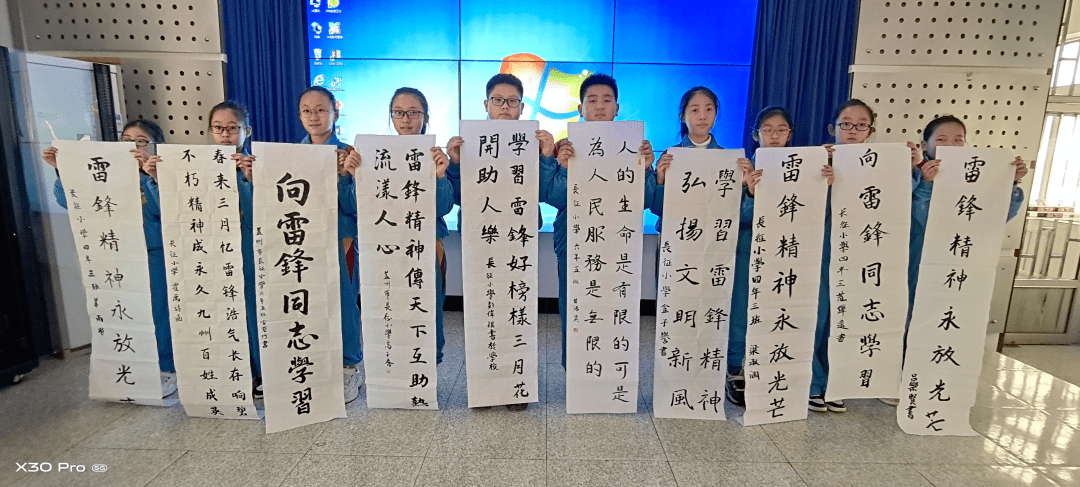 雷鋒精神永放光
長征小學四年三班
春来三月忆雷锋浩气长存响碧
不朽精神成永久九州百姓成英
长征小学
向雷鋒同志學習
盖州市長征小學六年五班
雷鋒精神傳天下互助熱
流漾人心
盖州市長征小學
學習雷鋒好榜樣三月花
開助人樂
長征小學彭偉祺書於學校
人的生命是有限的可是
為人民服務是無限的
長征小學六年五班
學習雷鋒精神
弘揚文明新風
長征小學金子學書
雷鋒精神永放光芒
長征小學四年三班 梁淑涵
向雷鋒同志學習
长征小學四年三
雷鋒精神永放光芒
X30 Pro 5G